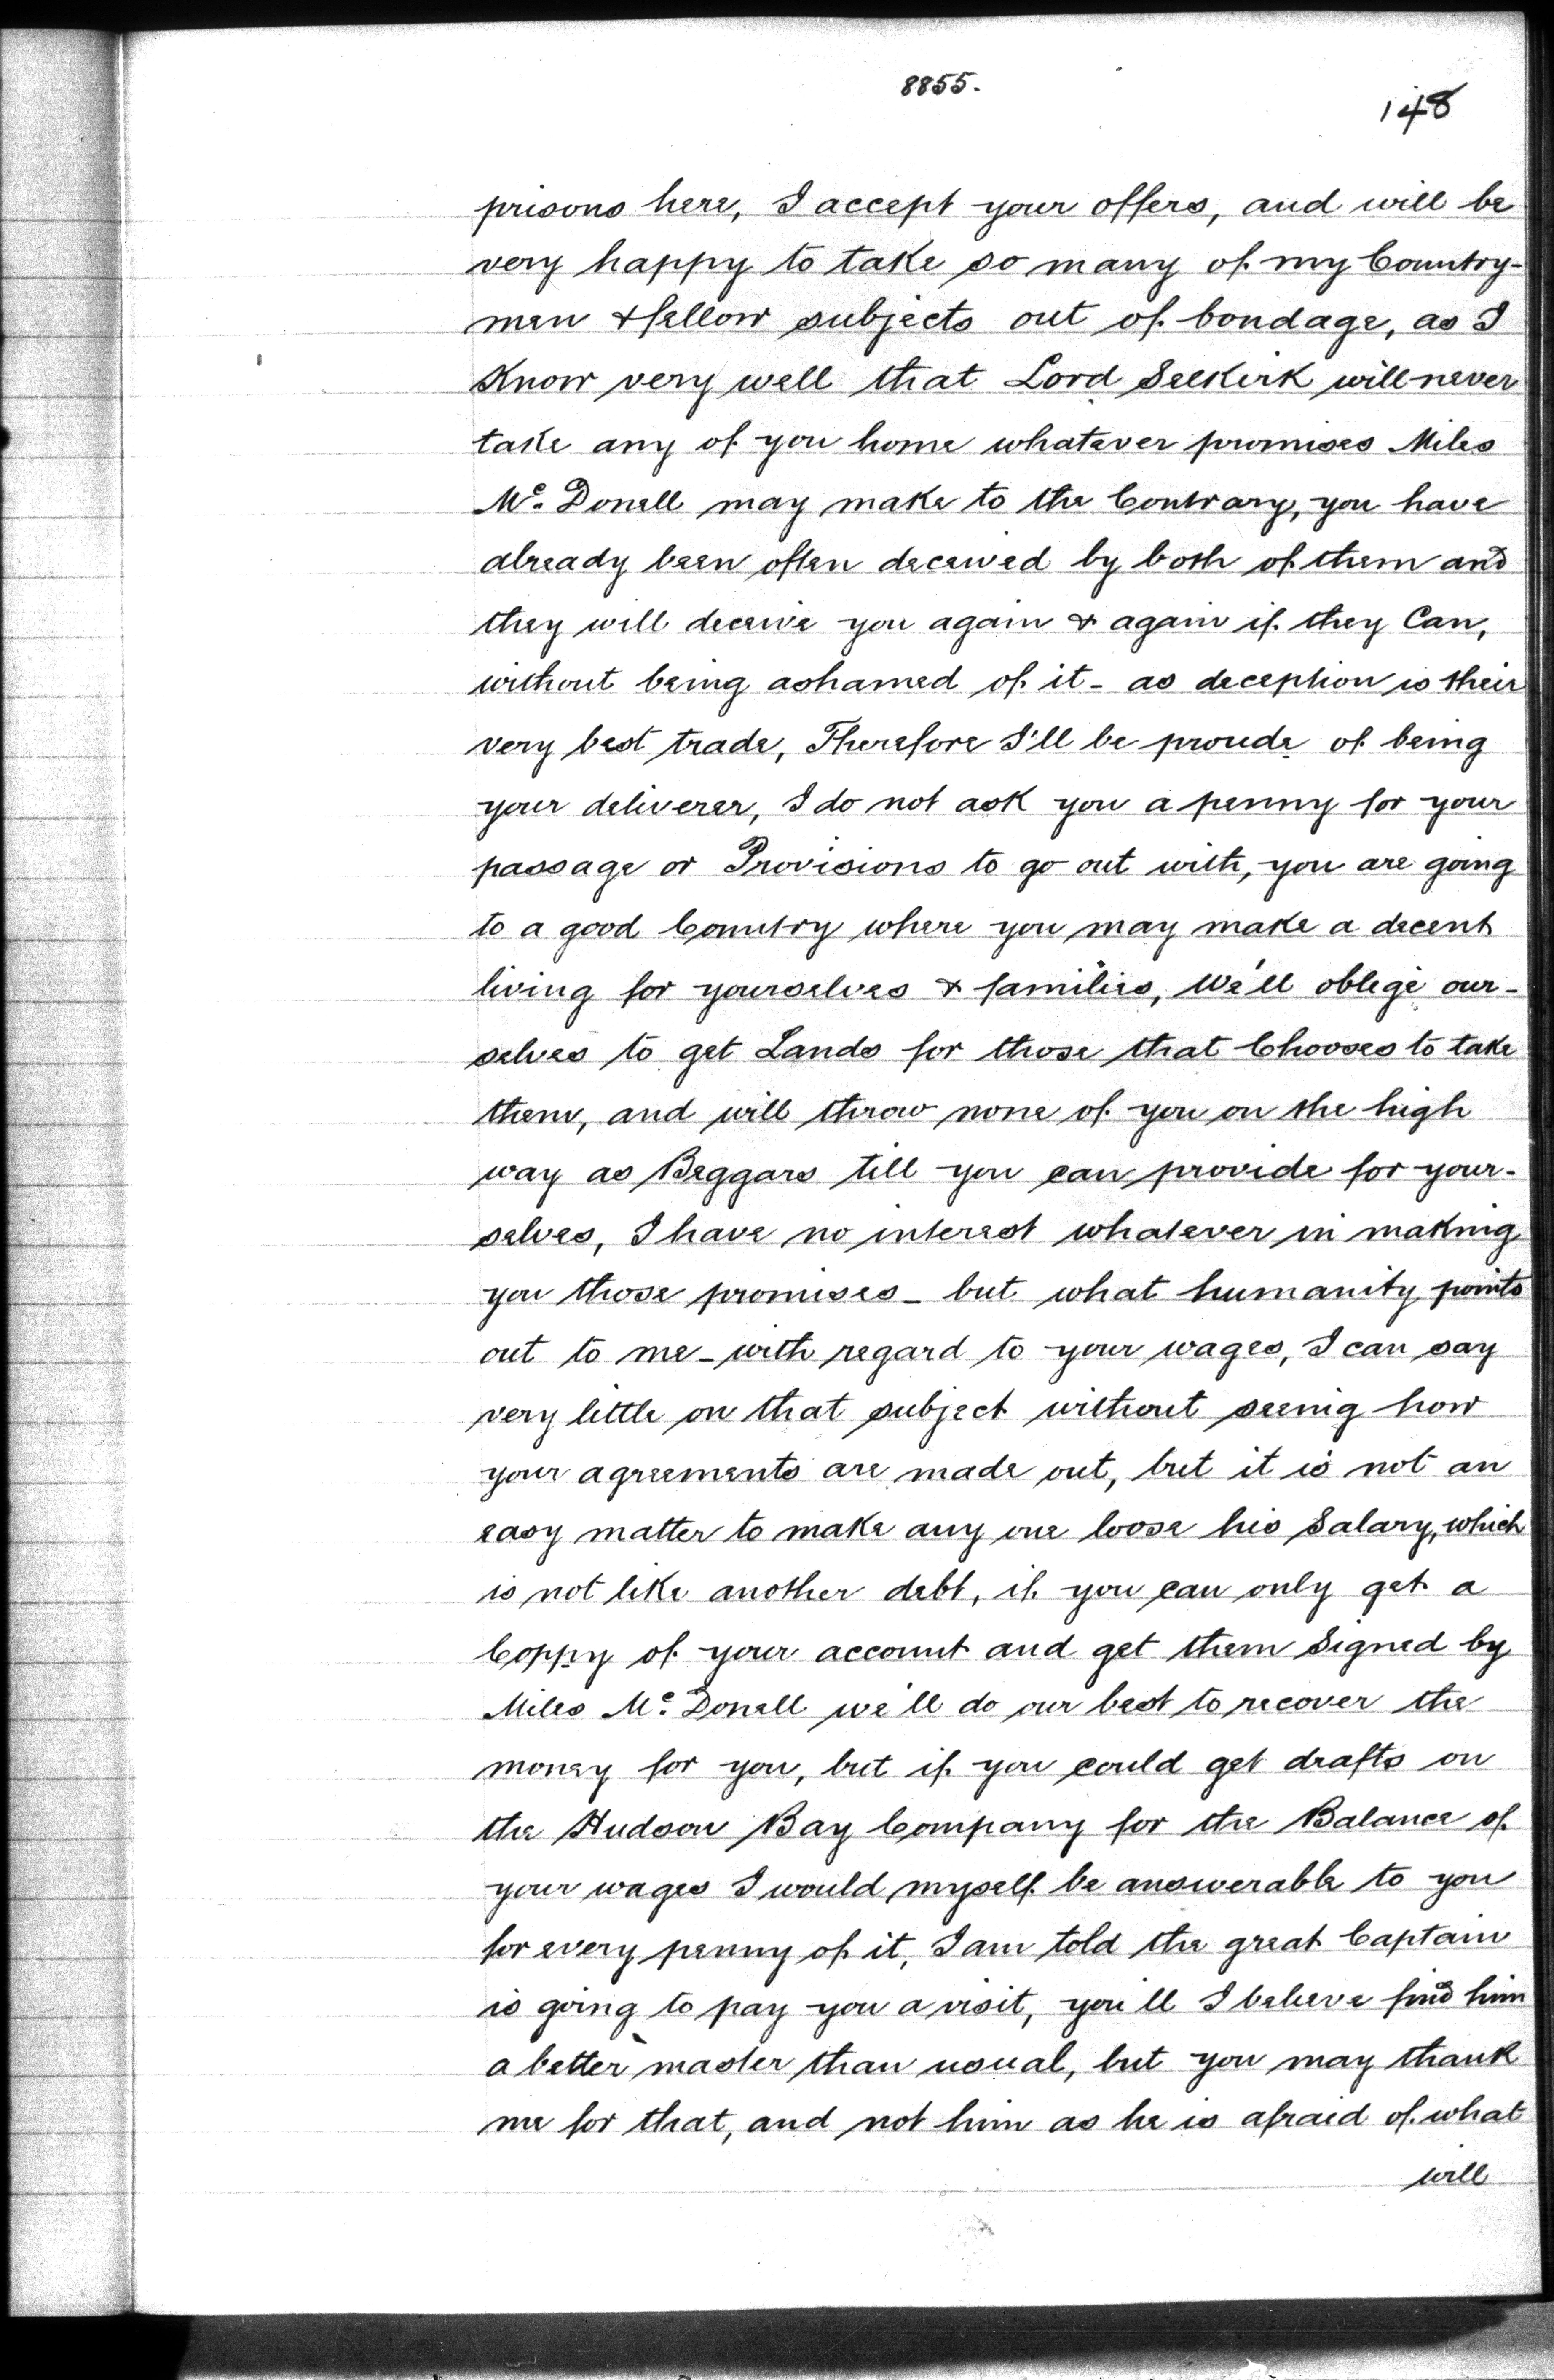 8855.
148
prisons here, I accept your offers, and will be
very happy to take so many of my Country-
men & fellow subjects out of bondage, as I
Know very well that Lord Selkirk will never
take any of you home whatever promises Miles
Mc. Donell may make to the Contrary, you have
already been often deceived by both of them and
they will deceive you again & again if they Can,
without being ashamed of it - as deception is their
very best trade, Therefore I'll be proude of being
your deliverer, I do not ask you a penny for your
passage or Provisions to go out with, you are going
to a good Country where you may make a decent
living for yourselves & families, We'll oblege our-
selves to get Lands for those that Chooses to take
them, and will throw none of you on the high
way as Beggars till you can provide for your-
selves, I have no interest whatever in making
you those promises - but what humanity points
out to me - with regard to your wages, I can say
very little on that subject without seeing how
your agreements are made out, but it is not an
easy matter to make any one loose his Salary, which
is not like another debt, if you can only get a
Coppy of your account and get them Signed by
Miles Mc. Donell we'll do our best to recover the
money for you, but if you could get drafts on
the Hudson Bay Company for the Balance of
your wages I would myself be answerable to you
for every penny of it, I am told the great Captain
is going to pay you a visit, you'll I believe find him
a better master than usual, but you may thank
me for that, and not him as he is afraid of what
will